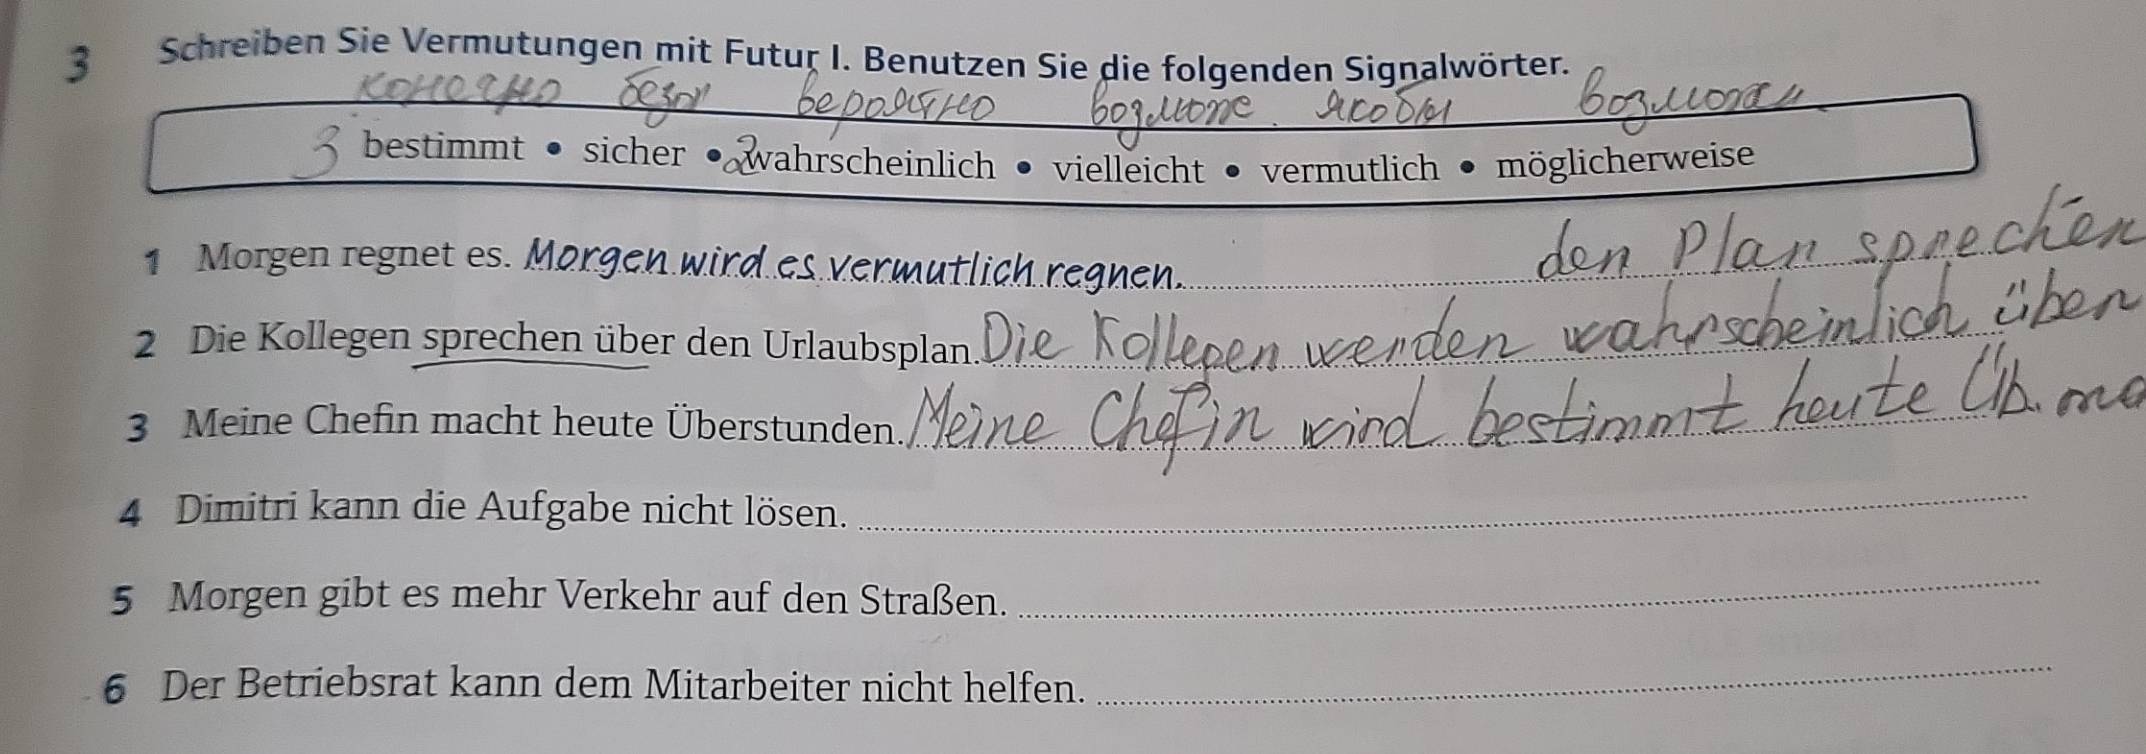 3 Schreiben Sie Vermutungen mit Futur I. Benutzen Sie die folgenden Signalwörter.
конечно безоп вероятно возможе. якобы возможн
3 bestimmt • sicher • 2 wahrscheinlich • vielleicht • vermutlich • möglicherweise
den Plan sprechen
1 Morgen regnet es. Morgen wird es vermutlich regnen.
2 Die Kollegen sprechen über den Urlaubsplan. Die Kollegen werden wahrscheinlich über
3 Meine Chefin macht heute Überstunden. Meine Chefin wird bestimmt heute Üb. ma
4 Dimitri kann die Aufgabe nicht lösen.
5 Morgen gibt es mehr Verkehr auf den Straßen.
6 Der Betriebsrat kann dem Mitarbeiter nicht helfen.